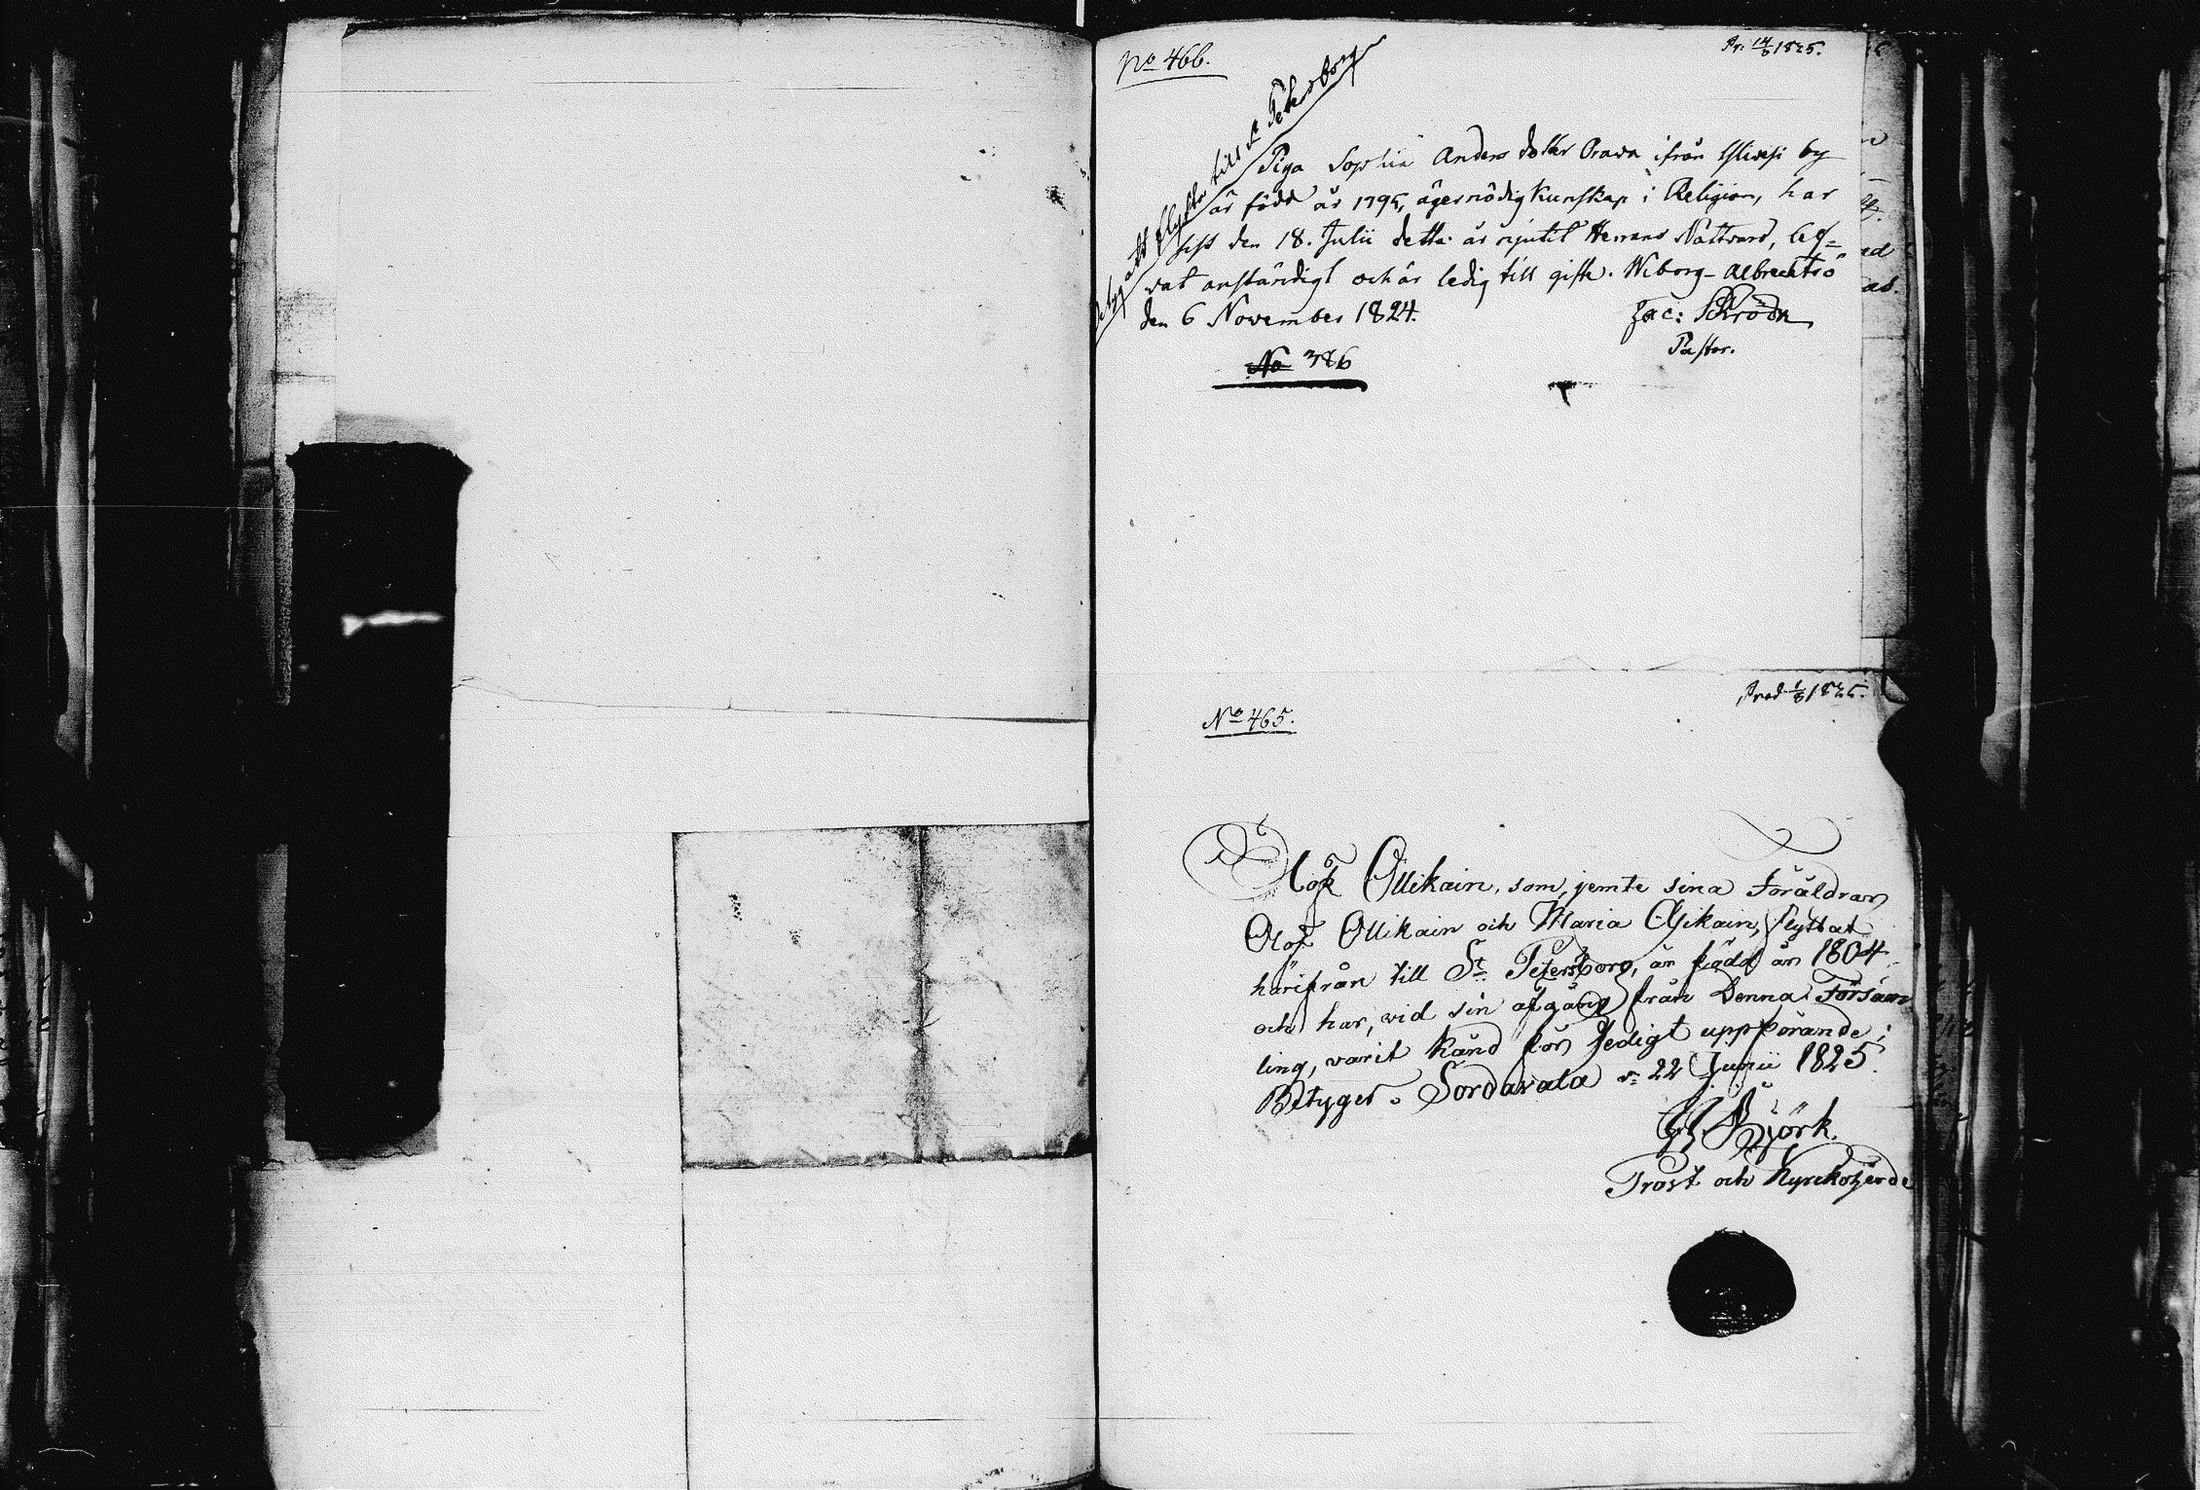 No 466.
Pr. 14/6 1825.
att flytta till St Petersborg
Piga Sophia Anders dotter Orava ifrån by
är född år 1795, äger nödig kunskap i Religion, har
sist den 18. Julii detta år njutit Herrans Nattvard, lef=
vat anständigt och är ledig till gifte. Wiborg - Albrechtsö
den 6 November 1824.
Jac:
Pastor.
No 386
Prod 1825.
No 465.
Olof Ollikain, som, jemte sina Föräldrar
Olof Ollikain och Maria flyttat
härifrån till St Petersborg, är född år 1804
och har, vid sin afgång från Denna Försam
ling, varit känd för sedigt uppförande;
Betyger. Sordavala d. 22 Junii 1825.
Björk.
Prost och Kyrckoherde